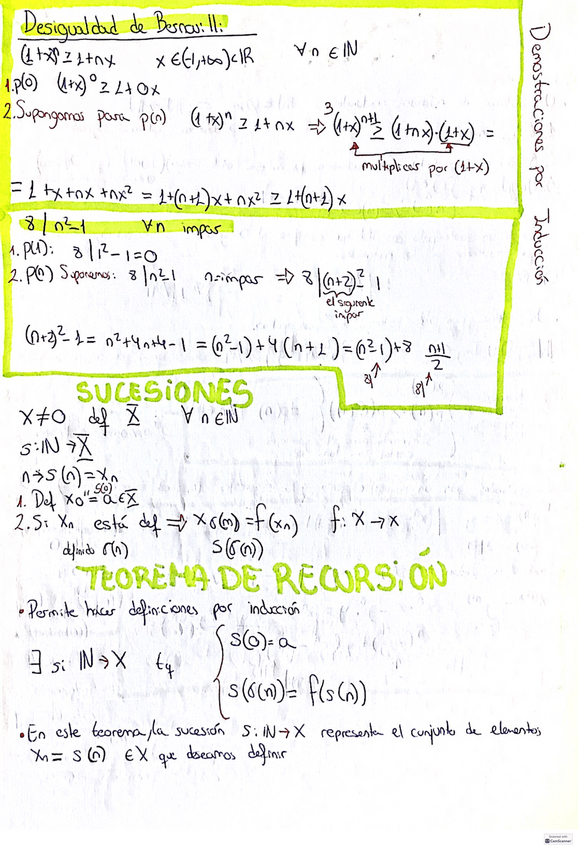 Desigualdad de Bernoulli:
(1+x)ⁿ ≥ 1+nx x ∈(-1,+∞)⊂ℝ ∀n ∈ ℕ
1. p(0) (1+x)⁰ ≥ 1+0x
2. Supongamos para p(n) (1+x)ⁿ ≥ 1+nx ⇒ 3 (1+x)ⁿ⁺¹ ≥ (1+nx)·(1+x) =
multiplicas por (1+x)
= 1+x+nx+nx² = 1+(n+1)x+nx² ≥ 1+(n+1)x
Demostraciones por Inducción
8 | n²-1 ∀n impar
1. P(1): 8 | 1²-1=0
2. P(n) Suponemos: 8 | n²-1 n=impar ⇒ 8 | (n+2)²-1
el siguiente
impar
(n+2)²-1 = n²+4n+4-1 = (n²-1)+4(n+1) = (n²-1)+8 (n+1)/2
8| 8|
SUCESIONES
X≠0 def X̄ ∀n∈ℕ
s:ℕ→X̄
n→s(n)=xₙ
1. Def x₀ = a ∈ X̄
s(0)
2. Si xₙ está def ⇒ x σ(n) = f(xₙ) f: X→x
definido σ(n) S(σ(n))
TEOREMA DE RECURSIÓN
• Permite hacer definiciones por inducción
∃ s: ℕ→X tq { S(0)=a
S(σ(n)) = f(s(n))
• En este teorema, la sucesión S:ℕ→X representa el conjunto de elementos
xₙ = s(n) ∈X que deseamos definir
CamScanner